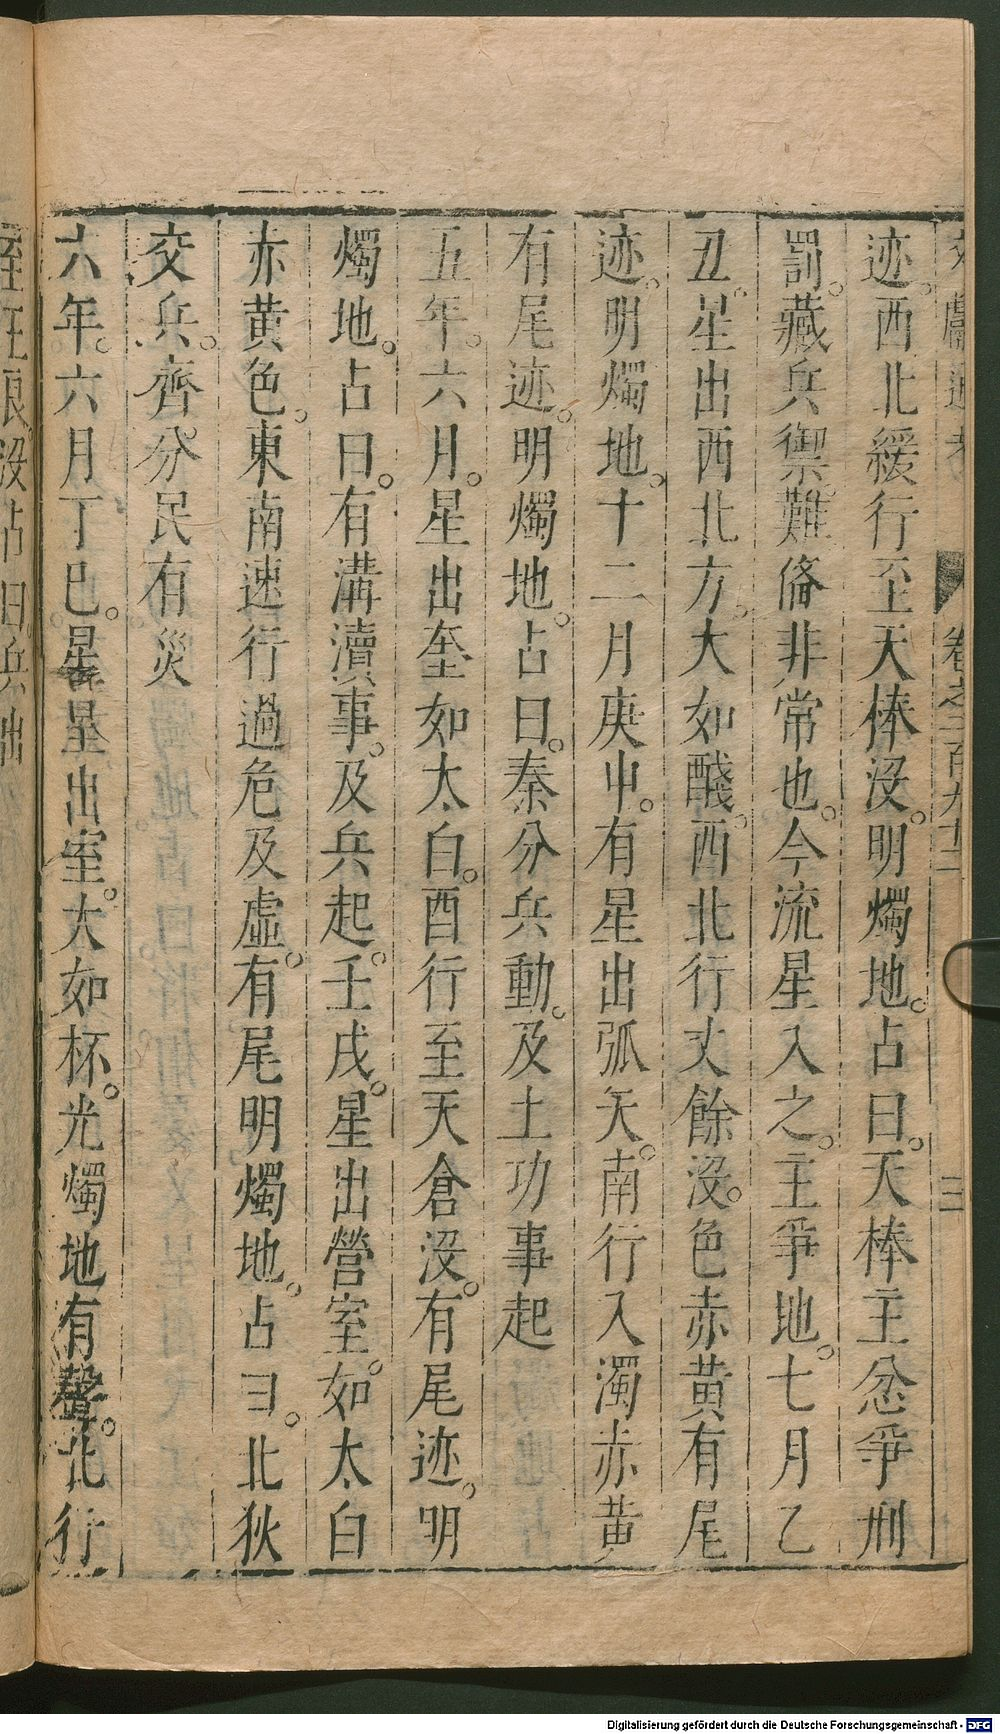 文獻通考 卷之二百九十二 三
迹。西北緩行至天棒沒。明燭地。占曰。天棒主忿爭刑
罰。藏兵禦難俻非常也。今流星入之。主爭地。七月乙
丑。星出西北方。大如醆。西北行丈餘沒。色赤黃有尾
迹。明燭地。十二月庚申。有星出弧矢。南行入濁赤黃
有尾迹。明燭地。占曰。秦分兵動。及土功事起
五年。六月。星出奎如太白。酉行至天倉沒。有尾迹。明
燭地。占曰。有溝瀆事。及兵起。壬戌。星出營室。如太白
赤黃色。東南速行過危及虛。有尾明燭地。占曰。北狄
交兵。齊分民有災
六年。六月丁巳。星出室。大如杯。光燭地有聲。北行
没占曰兵出
Digitalisierung gefördert durch die Deutsche Forschungsgemeinschaft - DFG